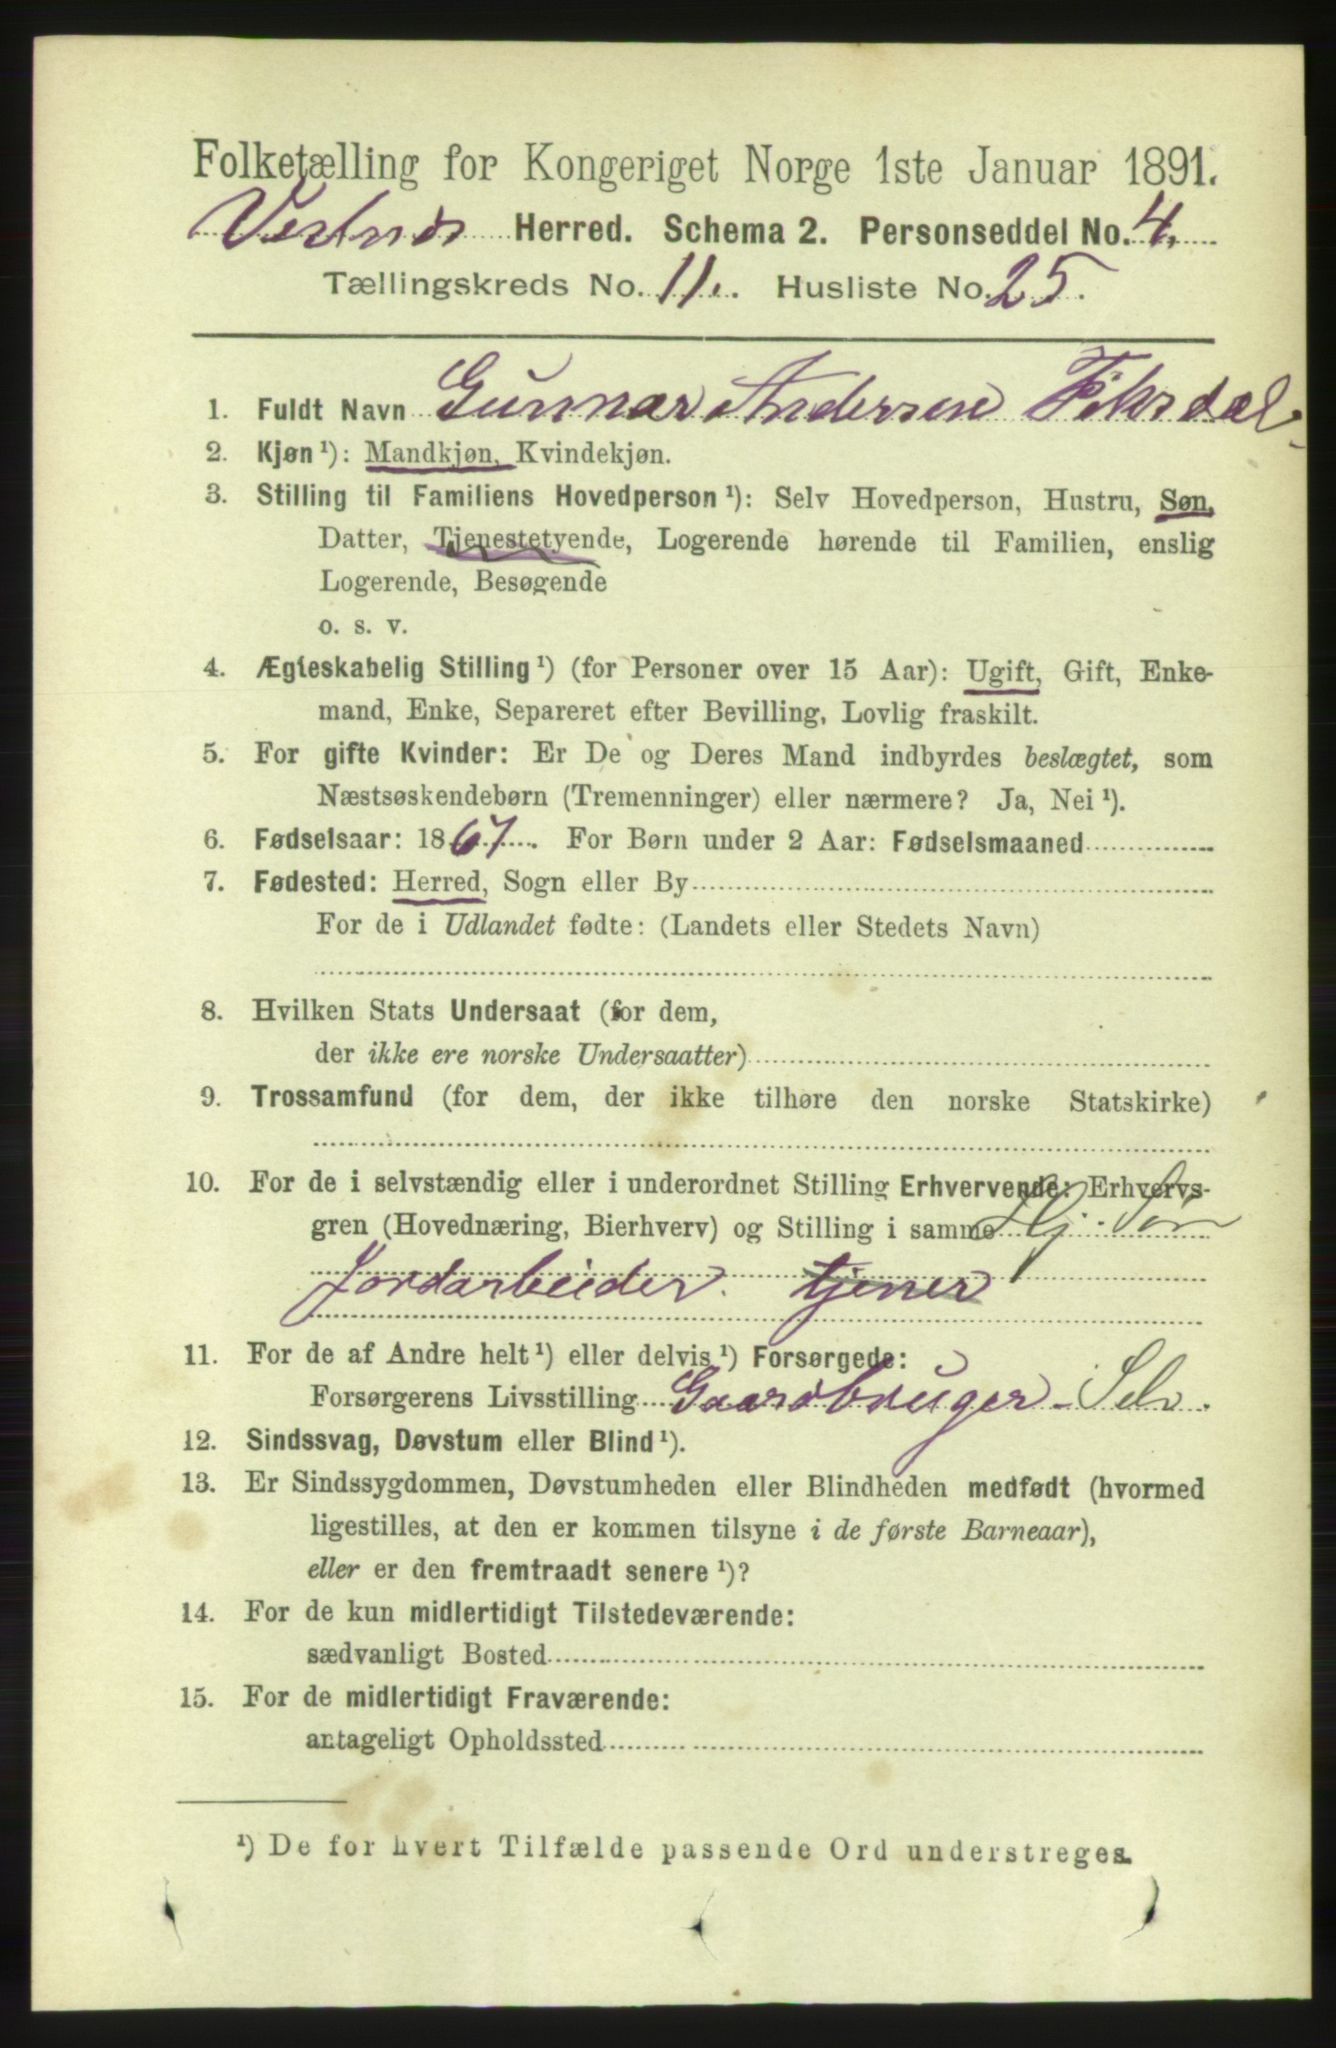 Folketælling for Kongeriget Norge 1ste Januar 1891.
Vestnes Herred. Schema 2. Personseddel No. 4.
Tællingskreds No. 11. Husliste No. 25.
1. Fuldt Navn Gunnar Andersen Fiksdal
2. Kjøn ¹): Mandkjøn, Kvindekjøn.
3. Stilling til Familiens Hovedperson ¹): Selv Hovedperson, Hustru, Søn,
Datter, Tjenestetyende, Logerende hørende til Familien, enslig
Logerende, Besøgende
o. s. v.
4. Ægteskabelig Stilling ¹) (for Personer over 15 Aar): Ugift, Gift, Enke-
mand, Enke, Separeret efter Bevilling, Lovlig fraskilt.
5. For gifte Kvinder: Er De og Deres Mand indbyrdes beslægtet, som
Næstsøskendebørn (Tremenninger) eller nærmere? Ja, Nei ¹).
6. Fødselsaar: 1867. For Børn under 2 Aar: Fødselsmaaned
7. Fødested: Herred, Sogn eller By
For de i Udlandet fødte: (Landets eller Stedets Navn)
8. Hvilken Stats Undersaat (for dem,
der ikke ere norske Undersaatter)
9. Trossamfund (for dem, der ikke tilhøre den norske Statskirke)
10. For de i selvstændig eller i underordnet Stilling Erhvervende: Erhvervs-
gren (Hovednæring, Bierhverv) og Stilling i samme Hj. Søn
Jordarbeider. tjener
11. For de af Andre helt ¹) eller delvis ¹) Forsørgede:
Forsørgerens Livsstilling Gaardbruger - Selv.
12. Sindssvag, Døvstum eller Blind ¹).
13. Er Sindssygdommen, Døvstumheden eller Blindheden medfødt (hvormed
ligestilles, at den er kommen tilsyne i de første Barneaar),
eller er den fremtraadt senere ¹)?
14. For de kun midlertidigt Tilstedeværende:
sædvanligt Bosted
15. For de midlertidigt Fraværende:
antageligt Opholdssted
¹) De for hvert Tilfælde passende Ord understreges.